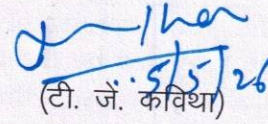 5/5/26
(टी. जें. कविथा)